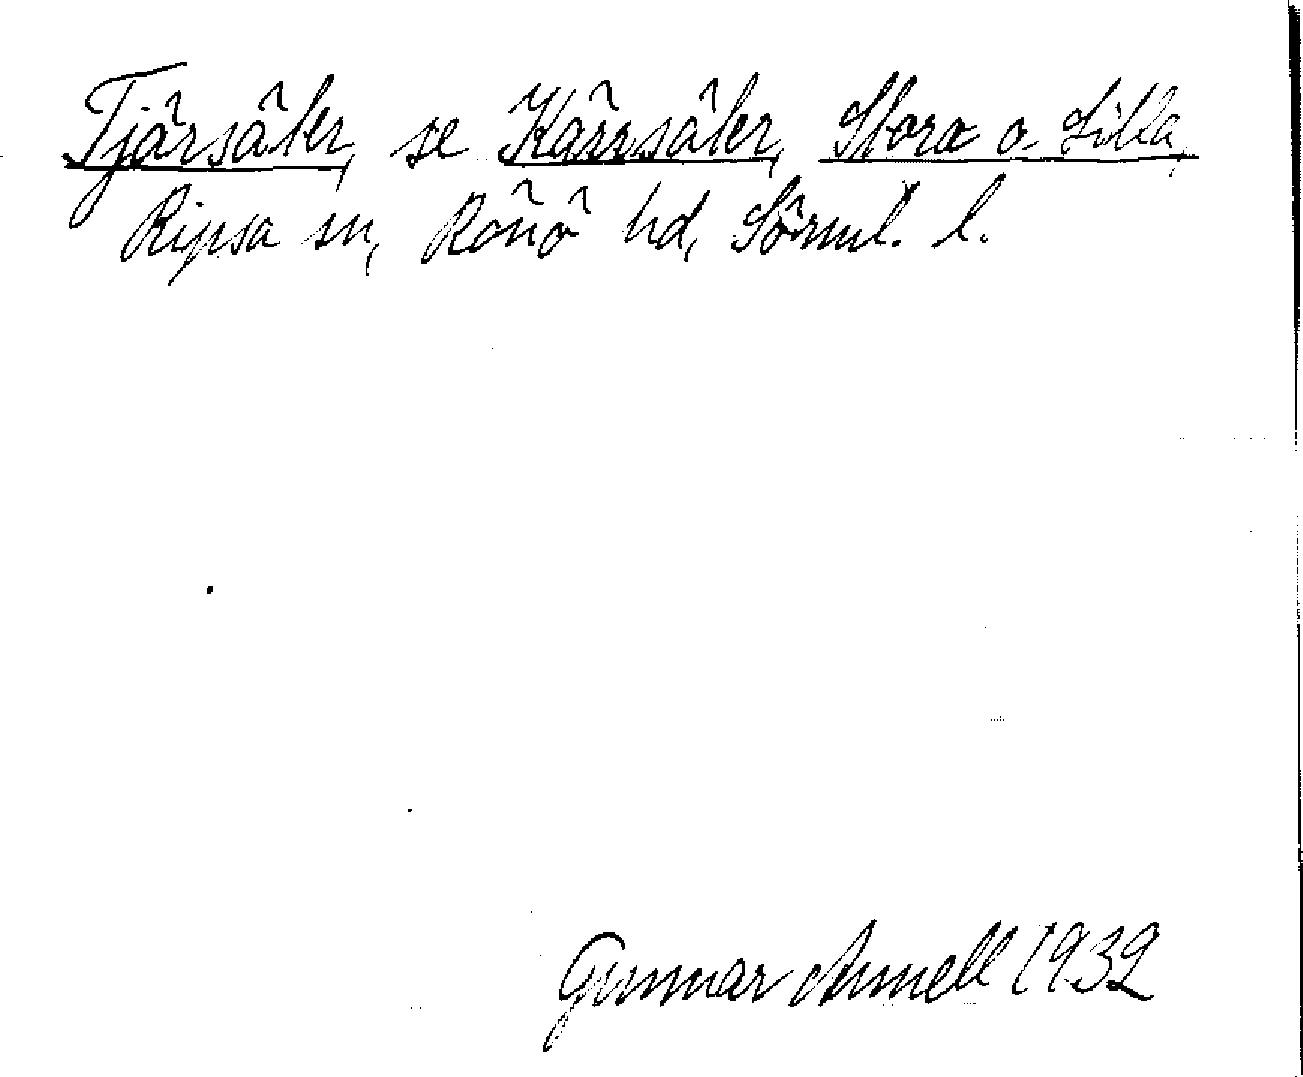 Tjärsäker, se Kärrsäker, Stora o. Lilla,
Ripsa sn, Rönö hd, Sörml. l.
Gunnar Arnell 1932